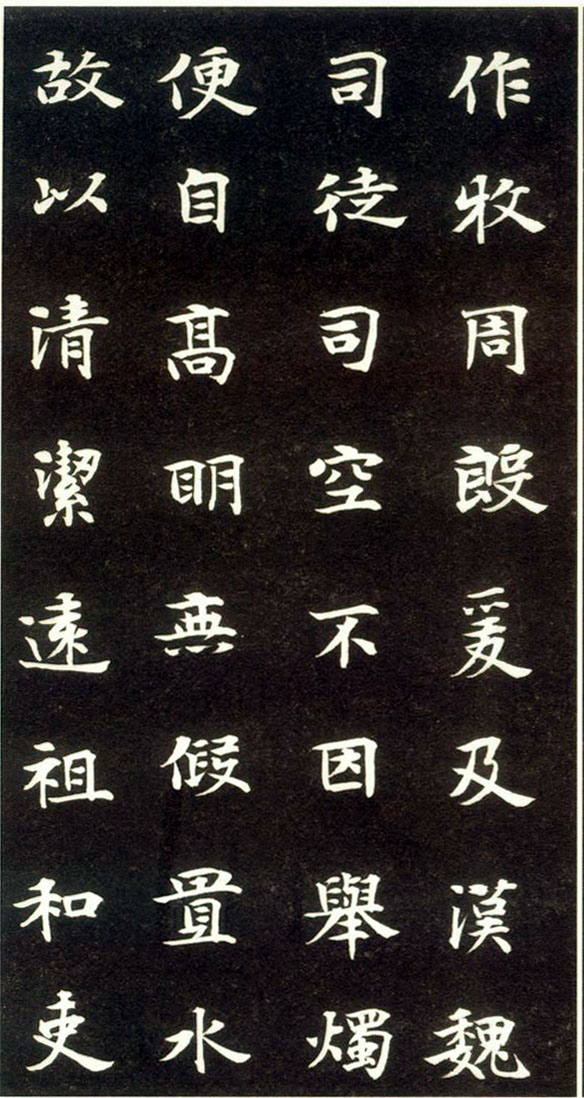 作牧周殷爰及漢魏
司徒司空不因舉燭
便自高明無假置水
故以清潔遠祖和吏